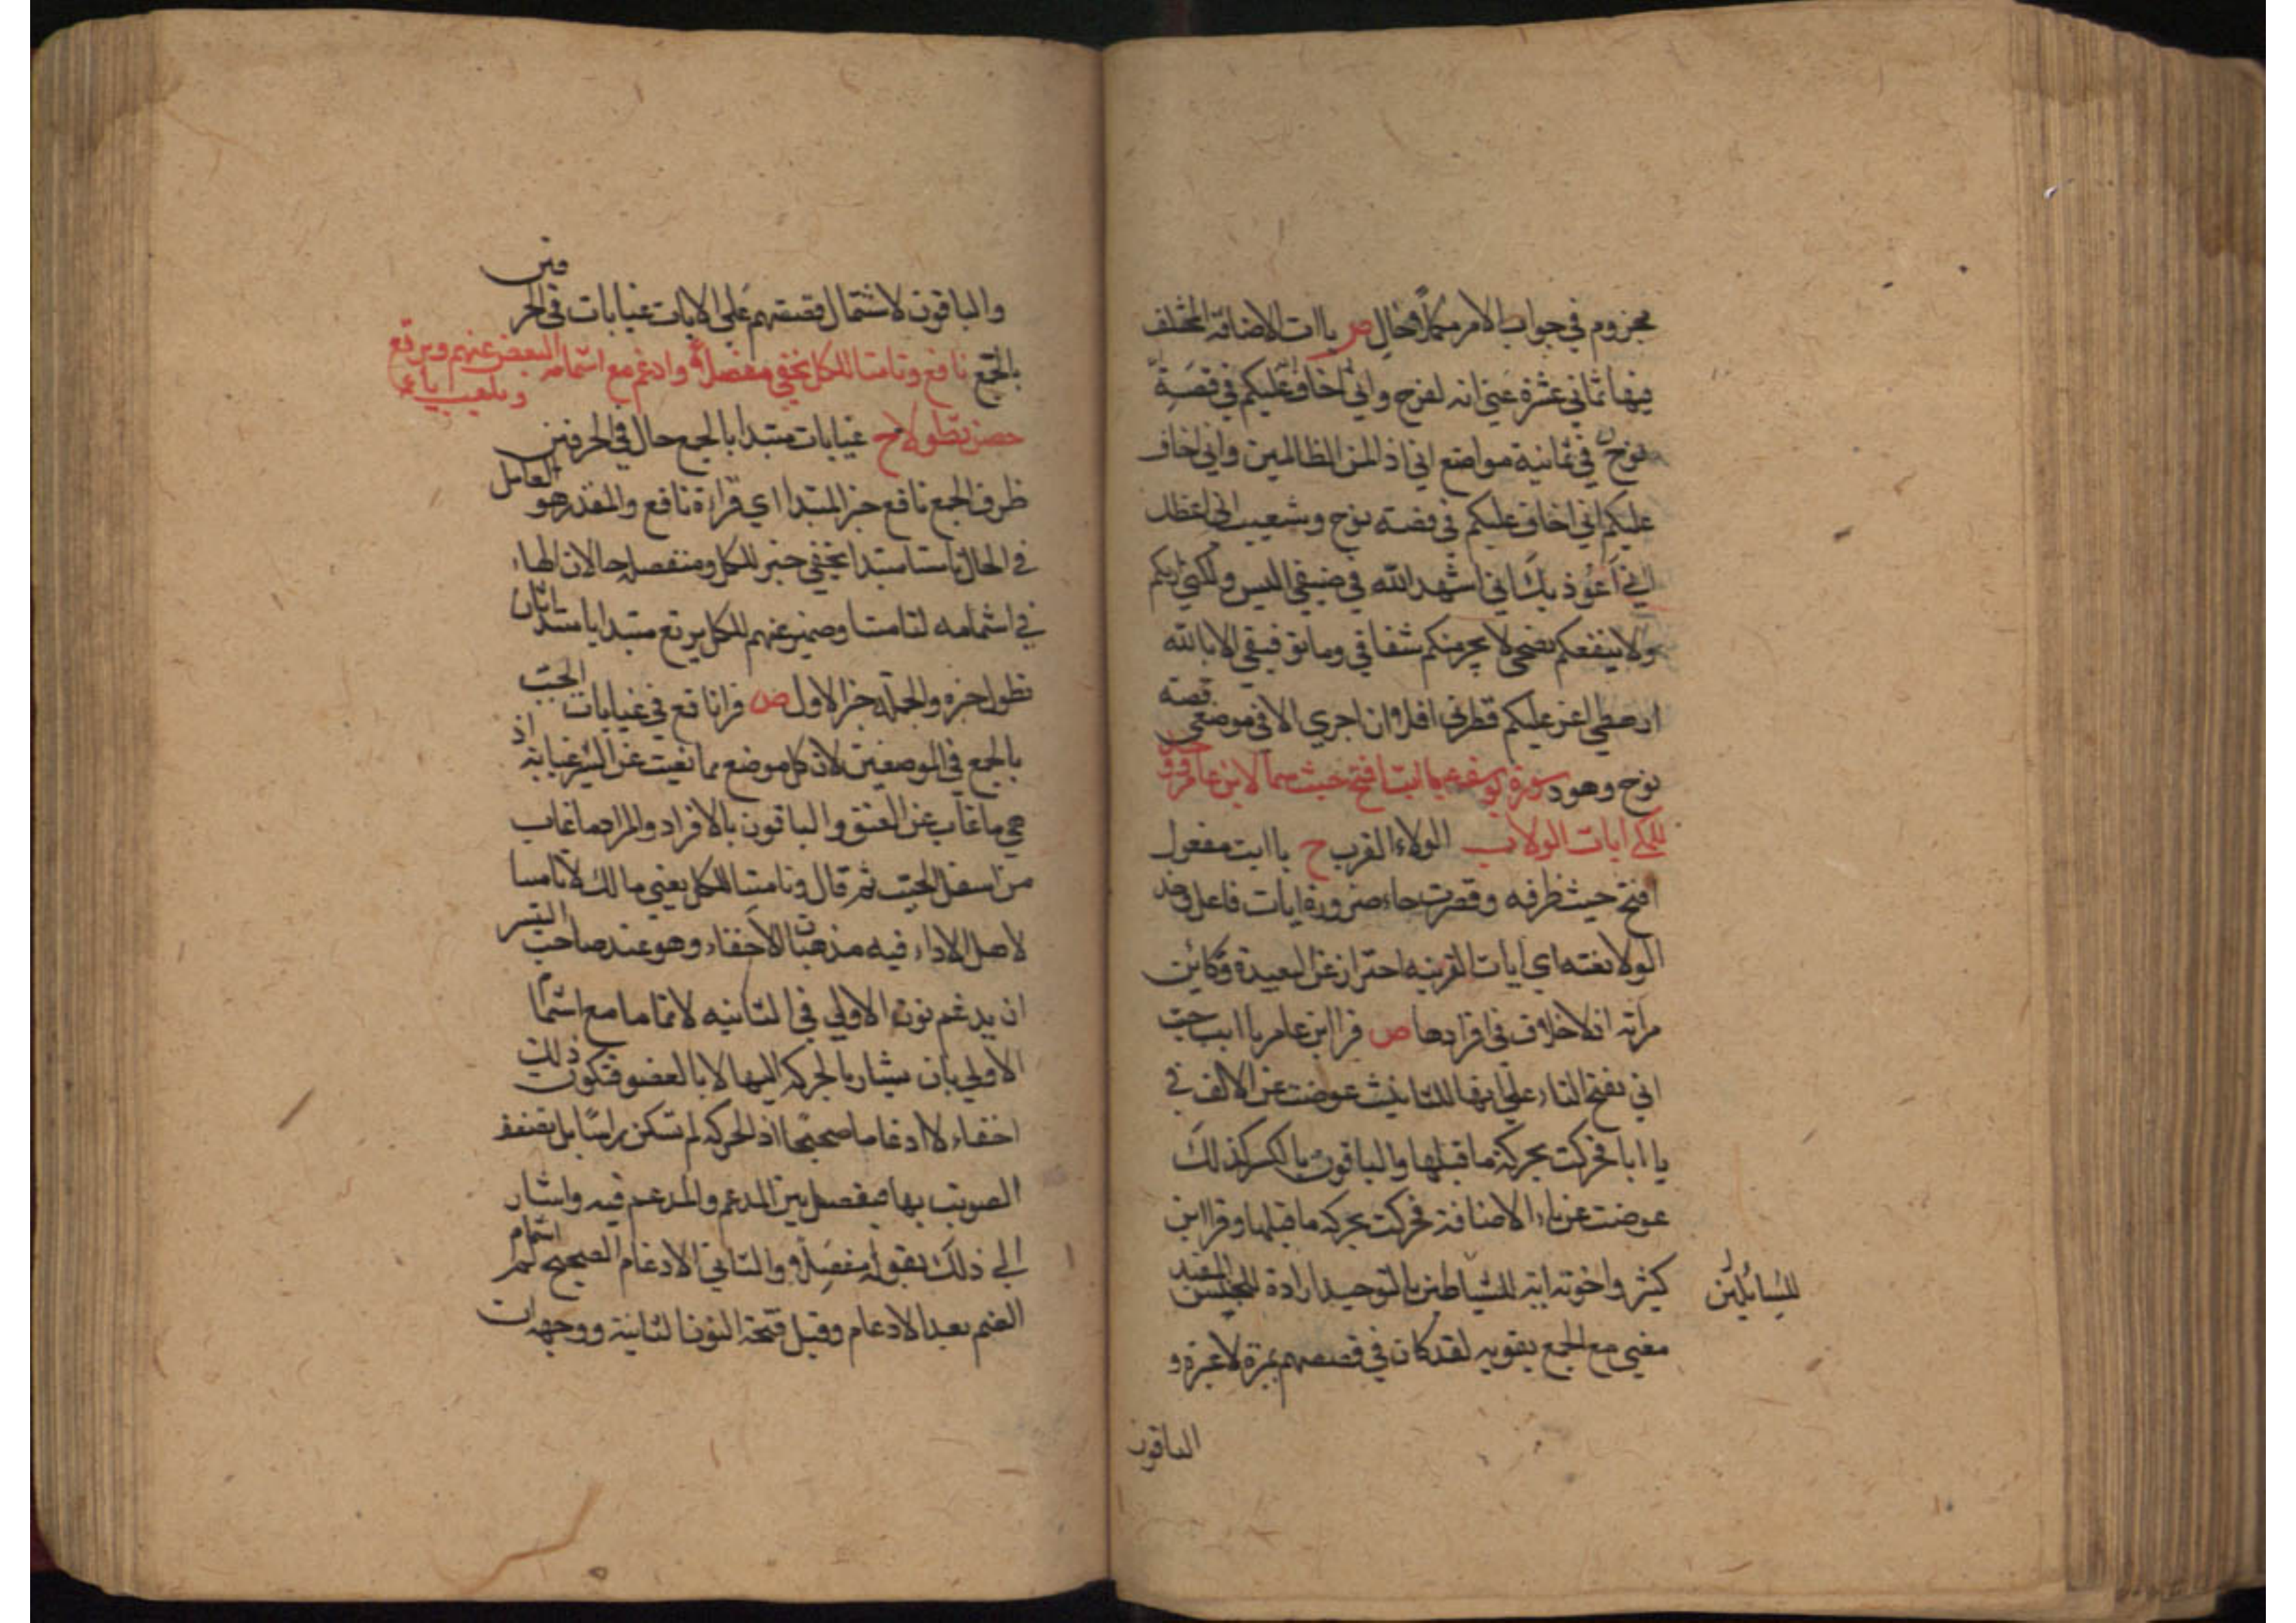 مجزوم في جواب الامر مكملا وحال ص ياات الاضافة المختلف
فيها ثماني عشرة عني انه لفرح واني اخاف عليكم في قصة
نوح في ثمانية مواضع اني اذا لمن الظالمين واني اخاف
عليكم اني اخاف عليكم في قصة نوح وشعيب اني اعظك
اني اعوذ بك اني اشهد الله في ضيفي اليس ولكني اريكم
ولا ينفعكم نصحي لا يجرمنكم شقاقي وما توفيقي الا بالله
ارهطي اعز عليكم فطرني افلا وان اجري الا في موضعي قصة
نوح وهود سورة يوسف عم يا ابت افتح حيث سما لابن عامر ووحد
للمكي ايات الولا ب الولاء القرب ح يا ابت مفعول
افتح حيث ظرفه وقصرت جاء ضرورة ايات فاعل وحد
الولا نعته اي ايات القريبة احتراز عن البعيدة وكاين
من آية اذ لا خلاف في افرادها ص قرا ابن عامر يا ابت حيث
اتي بفتح التاء علي انها للتانيث عوضت عن الالف في
يا ابا فحركت بحركة ما قبلها والباقون بالكسر لذلك
عوضت عن ياء الاضافة فحركت بحركة ما قبلها وقرا ابن
كثير واخوته اية للسائلين بالتوحيد ارادة للجنس المفيد
للسائلين
معني مع الجمع يقويه لقد كان في قصصهم عبرة لا عبرة و
الباقون
والباقون لاشتمال قصتهم علي الايات غيابات في الحرفين
بالجمع نافع وتامننا للكل يخفي مفصلا وادغم مع اشمامه البعض عنهم ويرتع
ويلعب ياء
حصن تطولا ح غيابات مبتدا بالجمع حال في الحرفين
ظرف الجمع نافع خبر المبتدا اي قراءة نافع والمقدر هو العامل
في الحال تامننا مبتدا يخفي خبر للكل ومفصلا حالان الهاء
في اشمامه لتامننا وضمير عنهم للكل يرتع مبتدا يا مبتدا ثان
تطول خبره والجملة خبر الاول ص قرا نافع في غيابات الجب
بالجمع في الموضعين لان كل موضع مما تغيب عن البئر غيابة اذ
هي ما غاب عن العين والباقون بالافراد والمراد ما غاب
من اسفل الجب ثم قال وتامننا للكل يعني مالك لا تامنا
لاهل الاداء فيه مذهبان الاخفاء وهو عند صاحب التيسير
ان يدغم نون الاولي في الثانية لا تماما مع اشمام
الاولي بان يشار بالحركة اليها لا بالعضو فتكون ذلك
اخفاء لا ادغاما صحيحا اذ الحركة لم تسكن راسا بل يضعف
الصوت بها فيفصل بين المدغم والمدغم فيه واشار
الي ذلك بقوله مفصلا والثاني الادغام الصحيح ثم اشمام
الضم بعد الادغام وقبل فتحة النون الثانية ووجهه ان